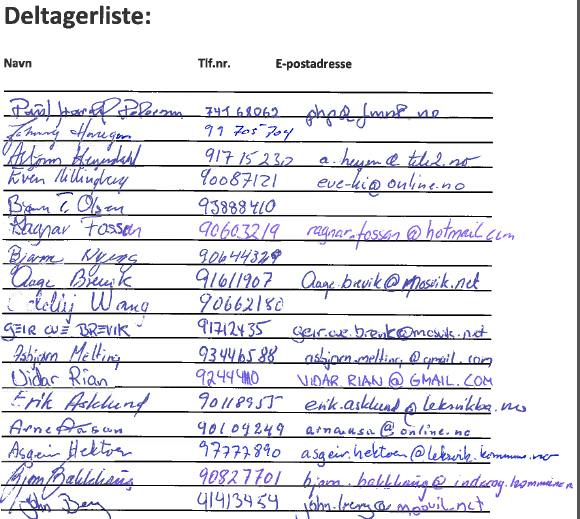 Deltagerliste:
Navn Tlf.nr. E-postadresse
Pål Harald Pedersen 74168062 php@fmnt.no
Johnny Haugen 99 705 704
Asbjørn 91715230 a.heyem@tele2.no
Even Hillingberg 90087121 eve-hi@online.no
Bjørn T. Olsen 93888410
Ragnar Fossan 90603219 ragnar.fossan@hotmail.com
Bjarne Nyeng 90644329
Aage Brevik 91611907 Aage.brevik@mosvik.net
Wang 90662180
GEIR OVE BREVIK 91712435 geir.ove.brevik@mosvik.net
Asbjørn Melting 93446588 asbjorn.melting@gmail.com
Vidar Rian 92444110 VIDAR RIAN @ GMAIL.COM
Erik Asklund 90118955 erik.asklund@leksvikba.no
Arne Aasan 90109249 arnaasa@online.no
Asgeir Hektoen 97772890 asgeir.hektoen@leksvik.kommune.no
Bjørn Bakkhaug 90827701 bjorn.bakkhaug@inderoy.kommune.n
John Berg 41413454 john.berg@mosvik.net